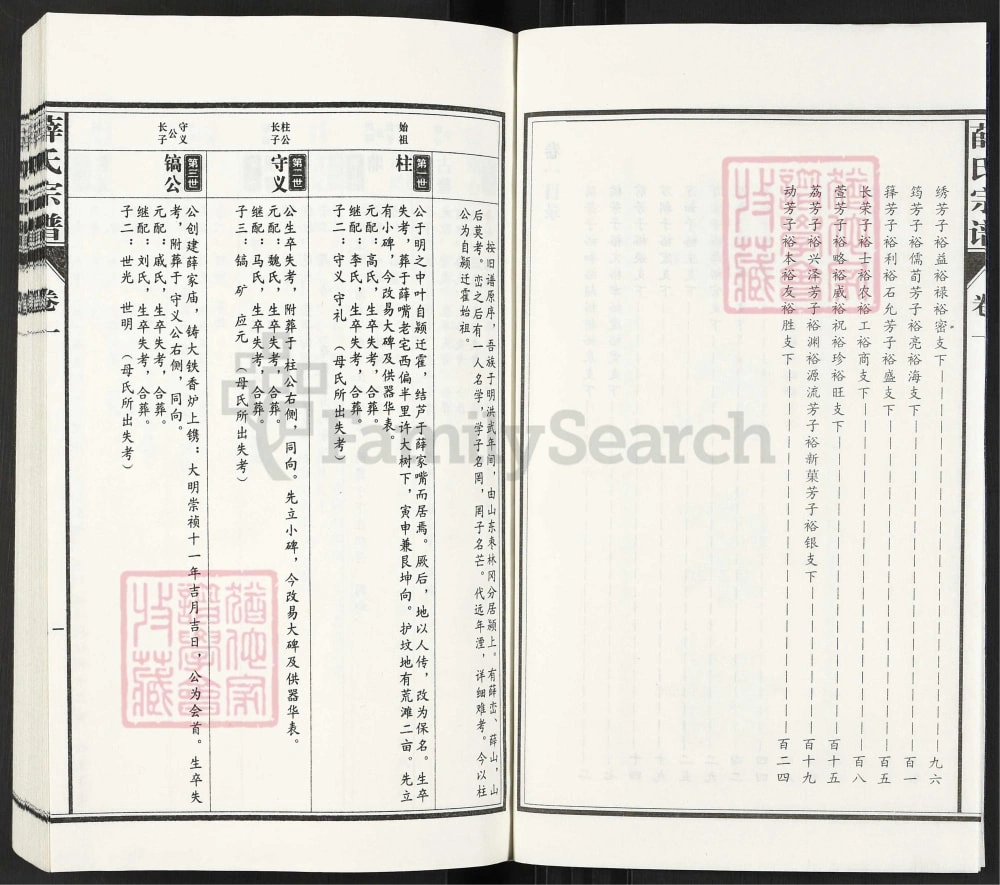 薛氏宗谱
卷一
绣芳子裕益裕禄裕密支下——九六
筠芳子裕儒荀芳子裕亮裕海支下——百一
箨芳子裕利裕石允芳子裕盛支下——百五
长荣子裕士裕农裕工裕商支下——百八
萱芳子裕略裕威裕祝裕珍裕旺支下——百十五
荔芳子裕兴泽芳子裕渊裕源流芳子裕新菓芳子裕银支下——百十九
动芳子裕本裕友裕胜支下——百二四
按旧谱原序，吾族于明洪武年间，由山东枣林冈分居颍上。有薛峦、薛山，山
后莫考。峦之后有一人名学，学子名罔，罔子名芒。代远年湮，详细难考。今以柱
公为自颍迁霍始祖。
始祖
第一世
柱
公于明之中叶自颍迁霍，结芦于薛家嘴而居焉。厥后，地以人传，改为保名。生卒
失考，葬于薛嘴老宅西偏半里许大树下，寅申兼艮坤向。护坟地有荒滩二亩。先立
有小碑，今改易大碑及供器华表。
元配：高氏，生卒失考，合葬。
继配：李氏，生卒失考，合葬。
子二：守义 守礼 （母氏所出失考）
柱公长子
第二世
守义
公生卒失考，附葬于 柱公右侧，同向。先立小碑，今改易大碑及供器华表。
元配：魏氏，生卒失考，合葬。
继配：马氏，生卒失考，合葬。
子三：镐 矿 应元 （母氏所出失考）
守义公长子
第三世
镐公
公创建薛家庙，铸大铁香炉上镌：大明崇祯十一年吉月吉日，公为会首。生卒失
考，附葬于 守义公右侧，同向。
元配：戚氏，生卒失考，合葬。
继配：刘氏，生卒失考，合葬。
子二：世光 世明 （母氏所出失考）
薛氏宗谱
卷一
一
FamilySearch